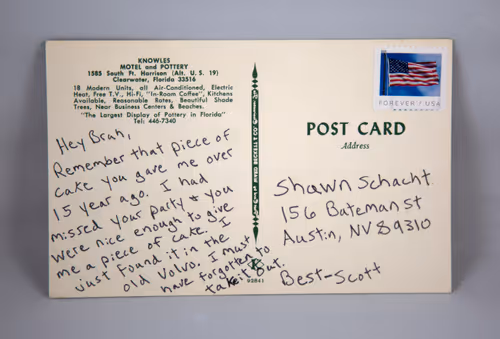 KNOWLES
MOTEL and POTTERY
1585 South Ft. Harrison (Alt. U. S. 19)
Clearwater, Florida 33516
18 Modern Units, all Air-Conditioned, Electric
Heat, Free T.V., Hi-Fi, "In-Room Coffee", Kitchens
Available, Reasonable Rates, Beautiful Shade
Trees, Near Business Centers & Beaches.
"The Largest Display of Pottery in Florida"
Tel: 446-7340
Hey Brah,
Remember that piece of
cake you gave me over
15 year ago. I had
missed your party & you
were nice enough to give
me a piece of cake. I
just found it in the
old Volvo. I must
have forgotten to
take it out.
93841
FOREVER / USA
POST CARD
Address
Shawn Schacht
156 Bateman St
Austin, NV 89310
Best-Scott